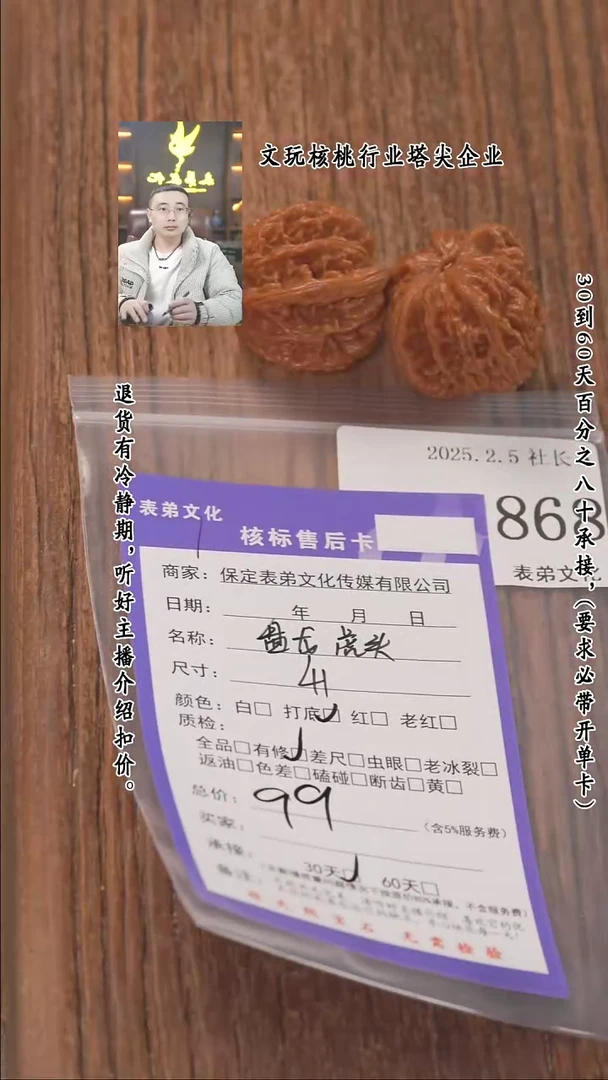 文玩核桃行业塔尖企业
30到60天百分之八十承接,(要求必带开单卡)
退货有冷静期,听好主播介绍扣价。
2025.2.5 社长
868
表弟文化
表弟文化
核标售后卡
商家: 保定表弟文化传媒有限公司
日期: 年 月 日
名称: 盘龙虎头
尺寸: 41
颜色: 白□ 打底□ 红□ 老红□
质检:
全品□有修□差尺□虫眼□老冰裂□
返油□色差□磕碰□断齿□黄□
总价: 99 (含5%服务费)
买家:
承接: 30天□ 60天□
备注:
无需检验